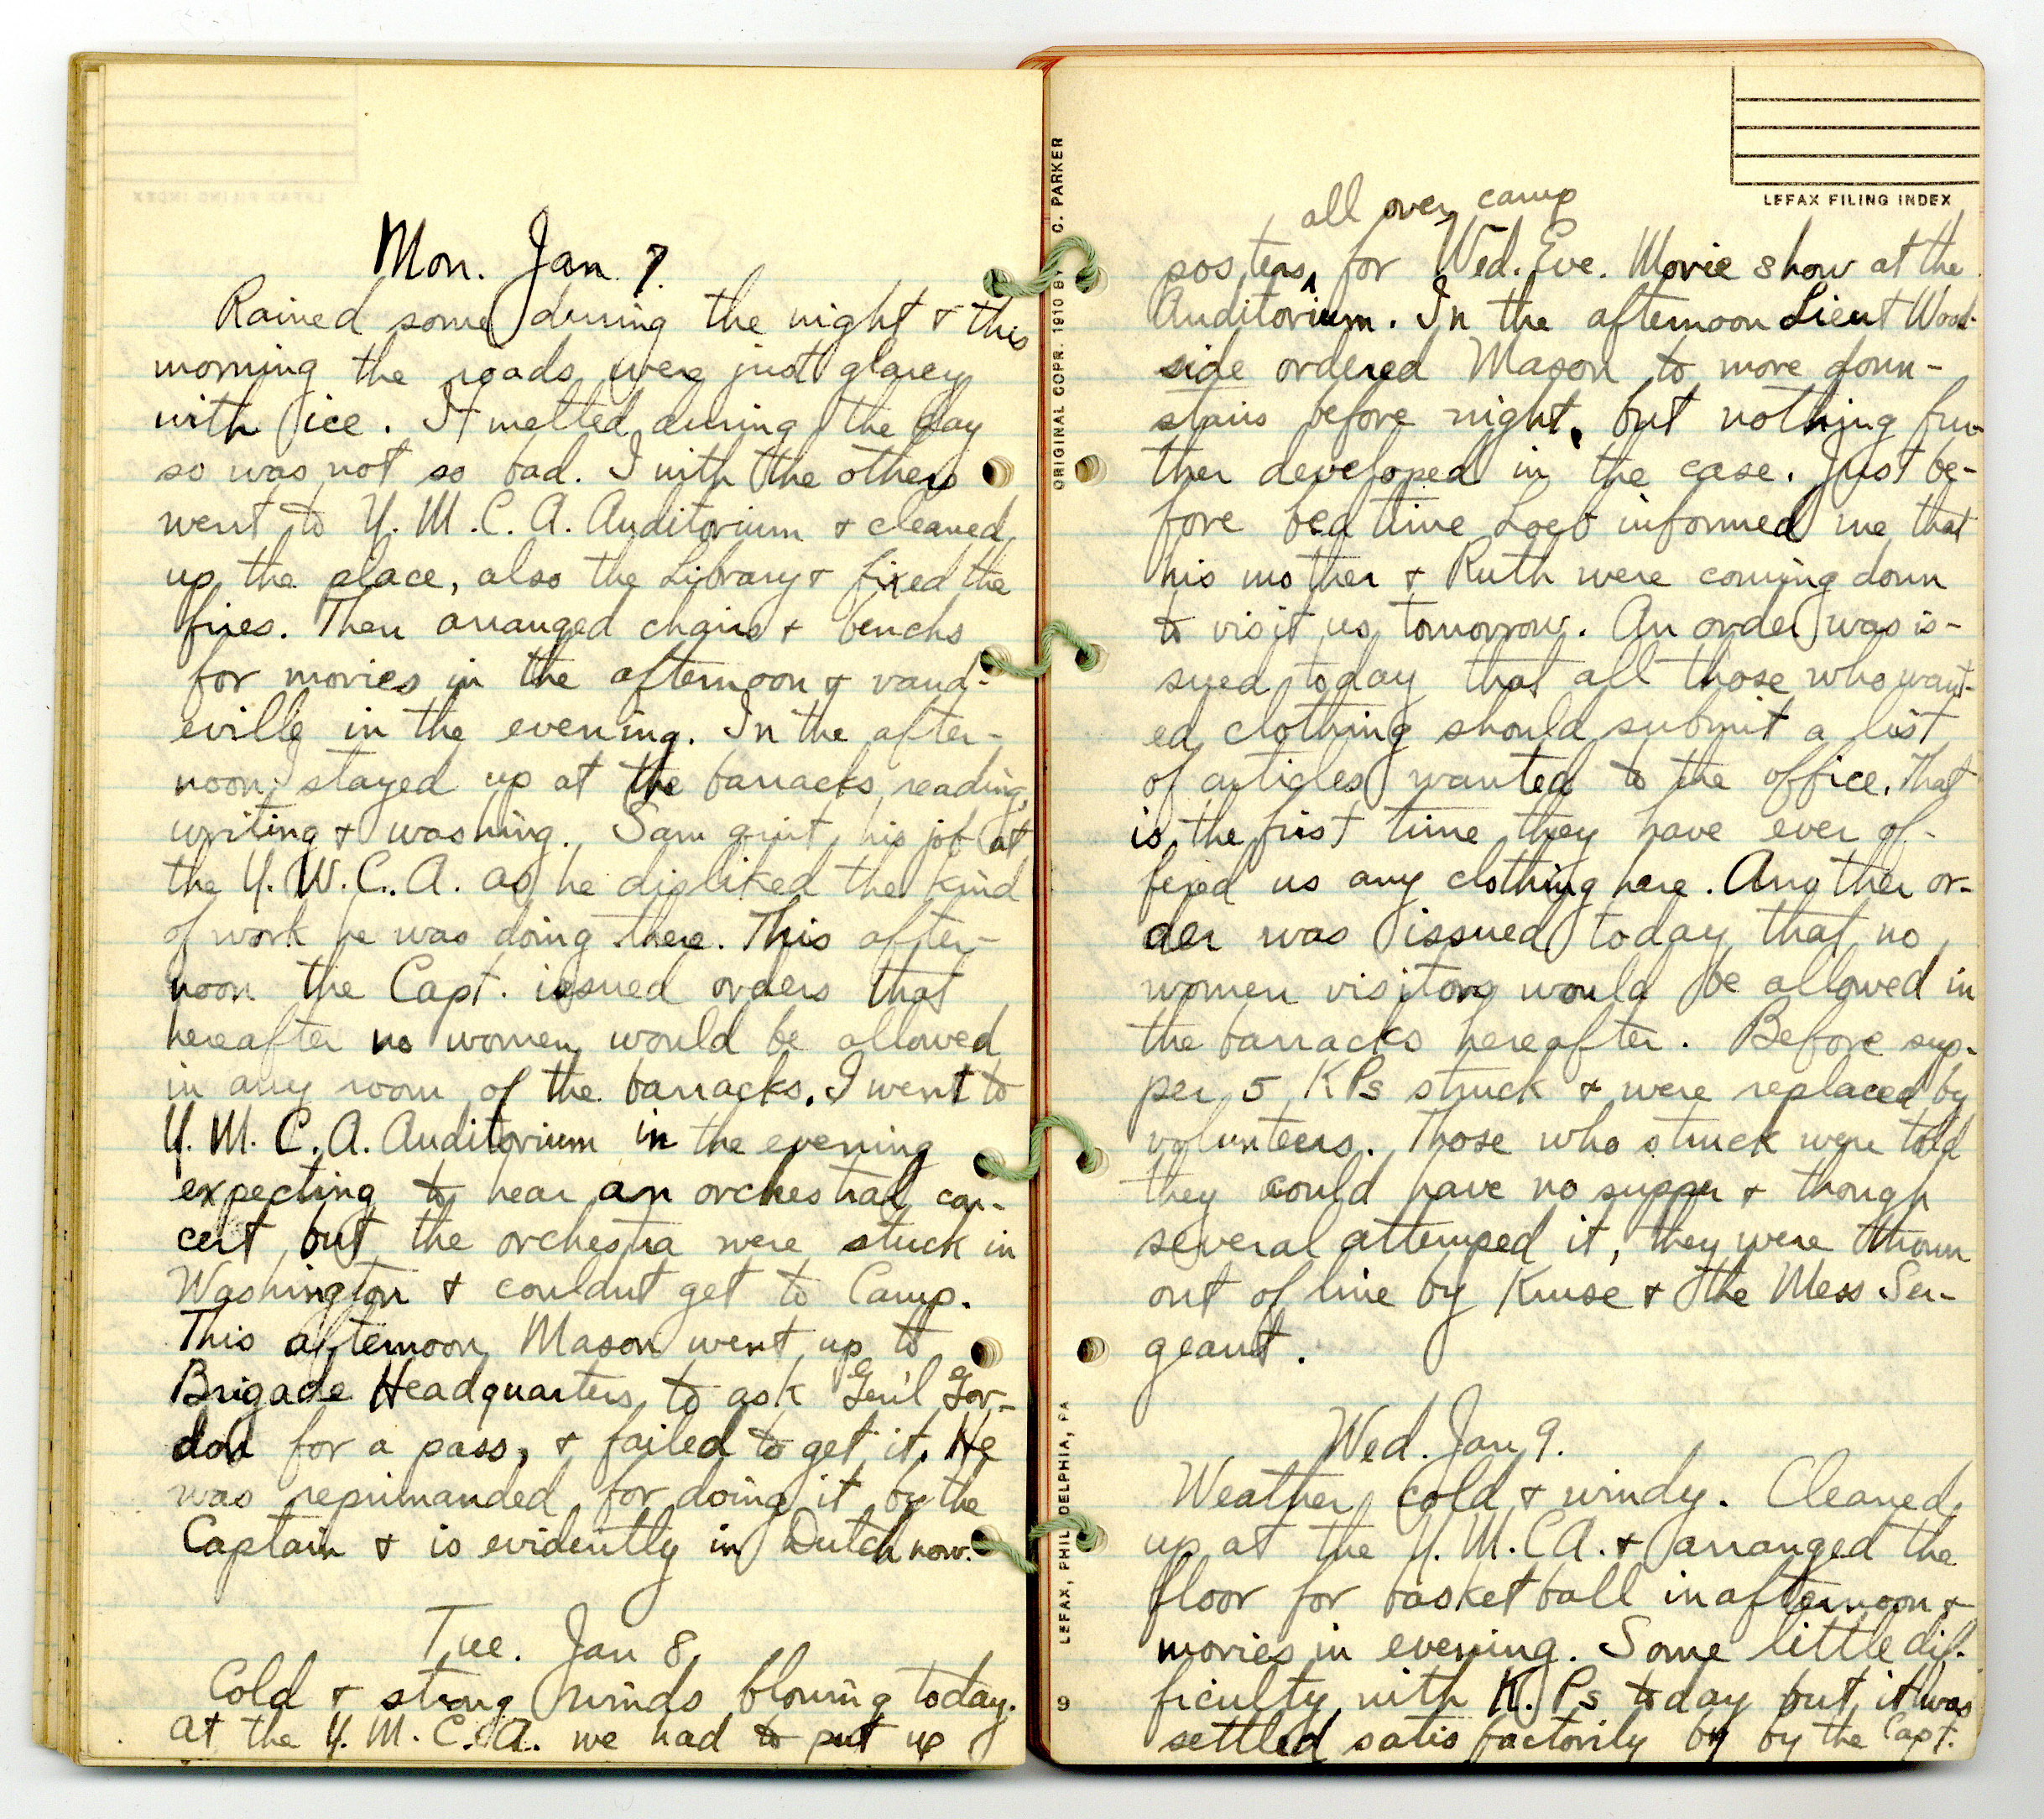 Mon. Jan. 7.
Rained some during the night & this
morning the roads were just glarey
with ice. It melted during the day
so was not so bad. I with the others
went to Y. M. C. A. Auditorium & cleaned
up the place, also the Library & fixed the
fires. Then arranged chairs & benchs
for movies in the afternoon & vaud-
eville in the evening. In the after-
noon stayed up at the barracks reading,
writing & washing. Sam quit his job at
the Y. W. C. A. as he disliked the kind
of work he was doing there. This after-
noon the Capt. issued orders that
hereafter no women would be allowed
in any room of the barracks. I went to
Y. M. C. A. Auditorium in the evening
expecting to hear an orchestral con-
cert but the orchestra were stuck in
Washington & couldnt get to Camp.
This afternoon Mason went up to
Brigade Headquarters to ask Gen'l Gor-
don for a pass, & failed to get it. He
was reprimanded for doing it by the
Captain & is evidently in Dutch now.
Tue. Jan 8
Cold & strong winds blowing today.
At the Y. M. C. A. we had to put up
LEFAX FILING INDEX
ORIGINAL COPR. 1910 BY C. PARKER
LEFAX, PHILADELPHIA, PA
9
all over camp
posters for Wed. Eve. Movie show at the
Auditorium. In the afternoon Lieut Wood-
side ordered Mason to move down-
stairs before night, but nothing fur-
ther developed in the case. Just be-
fore bed time Loeb informed me that
his mother & Ruth were coming down
to visit us tomorrow. An order was is-
sued today that all those who want-
ed clothing should submit a list
of articles wanted to the office. That
is the first time they have ever of-
fered us any clothing here. Another or-
der was issued today that no
women visitors would be allowed in
the barracks hereafter. Before sup-
per 5 KPs struck & were replaced by
volunteers. Those who struck were told
they could have no supper & though
several attemped it, they were thrown
out of line by Kruse & the Mess Ser-
geant.
Wed. Jan 9.
Weather cold & windy. Cleaned
up at the Y. M. C A. & arranged the
floor for basket ball in afternoon &
movies in evening. Some little dif-
ficulty with K. Ps today but it was
settled satisfactorily by by the Capt.